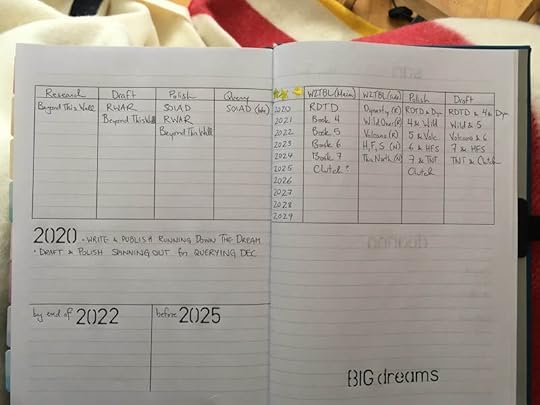 Research Draft Polish Query
Beyond This Wall RWAR SOIAD SOIAD
Beyond This Wall RWAR
Beyond This Wall
2020 • WRITE & PUBLISH RUNNING DOWN THE DREAM
• DRAFT & POLISH SPINNING OUT for QUERYING DEC
by end of 2022
before 2025
WZTBL (Main) WZTBL Polish Draft
2020 RDTD Dynasty (R) RDTD & Dyn RDTD & 4 & Dyn
2021 Book 4 Wild One (R) 4 & Wild Wild & 5
2022 Book 5 Volcano (R) 5 & Volc. Volcano & 6
2023 Book 6 H,F,S (N) 6 & HFS 7 & HFS
2024 Book 7 This North (N) 7 & TNT TNT & Clutch
2025 Clutch Clutch
2026
2027
2028
2029
BIG dreams